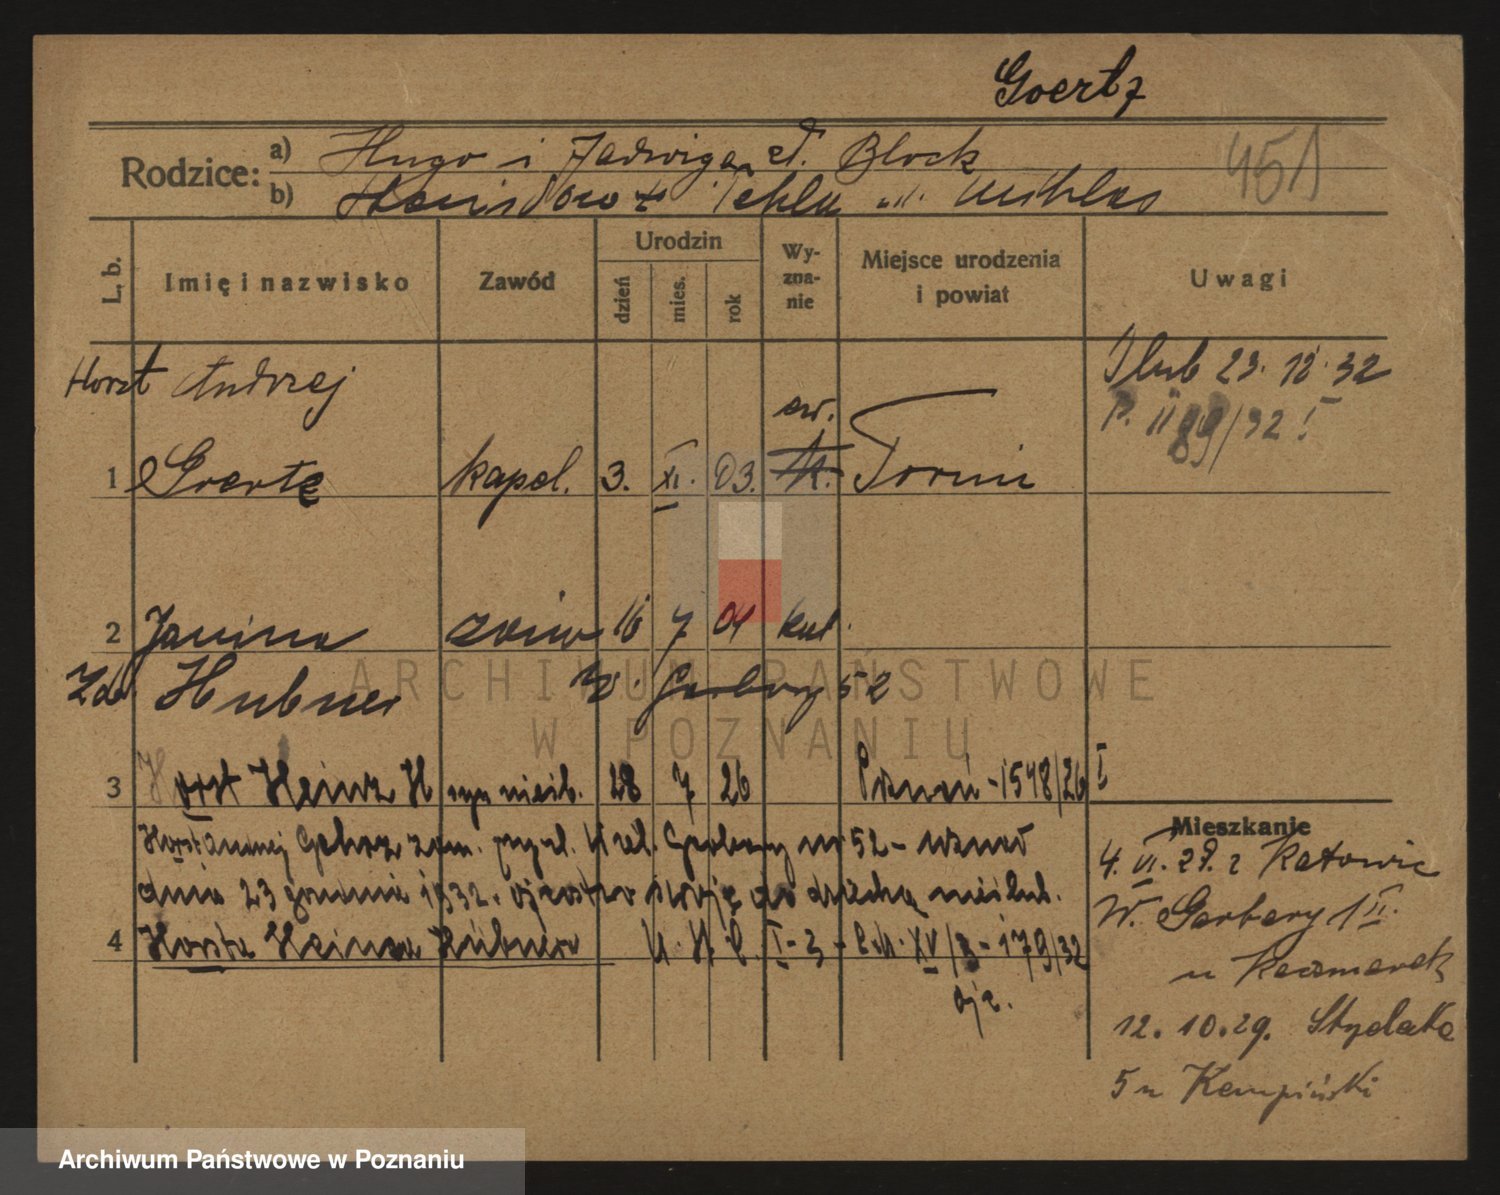 Goertz
Rodzice:
a) Hugo i Jadwiga Block
b) Tekla
451
L. b.
Imię i nazwisko
Zawód
Urodzin
dzień
mies.
rok
Wyznanie
Miejsce urodzenia i powiat
Uwagi
Horst Andrzej
ew.
Ślub 23. 12. 32
P. II 89/32 I
1 Goertz kapel. 3. XI. 03. Torun
2 Janina 16 7 04 kat.
Hubner W. Garbary 52
3 Horst Heinz H syn nieśl. 28 7 26 Poznań - 1548/26 I
Horst Andrzej zam. przy ul. W. Garbary nr 52 - uznał
dnia 23 grudnia 1932. ojcostwo swoje do dziecka nieślub.
4 Horsta Heinza Hübnera I-3- XV/3-179/32
ojc.
Mieszkanie
4. VI. 29. z Katowic
W. Garbary 1 II.
u Kaczmarek
12. 10. 29.
5 u Kempiński
ARCHIWUM PAŃSTWOWE
W POZNANIU
Archiwum Państwowe w Poznaniu